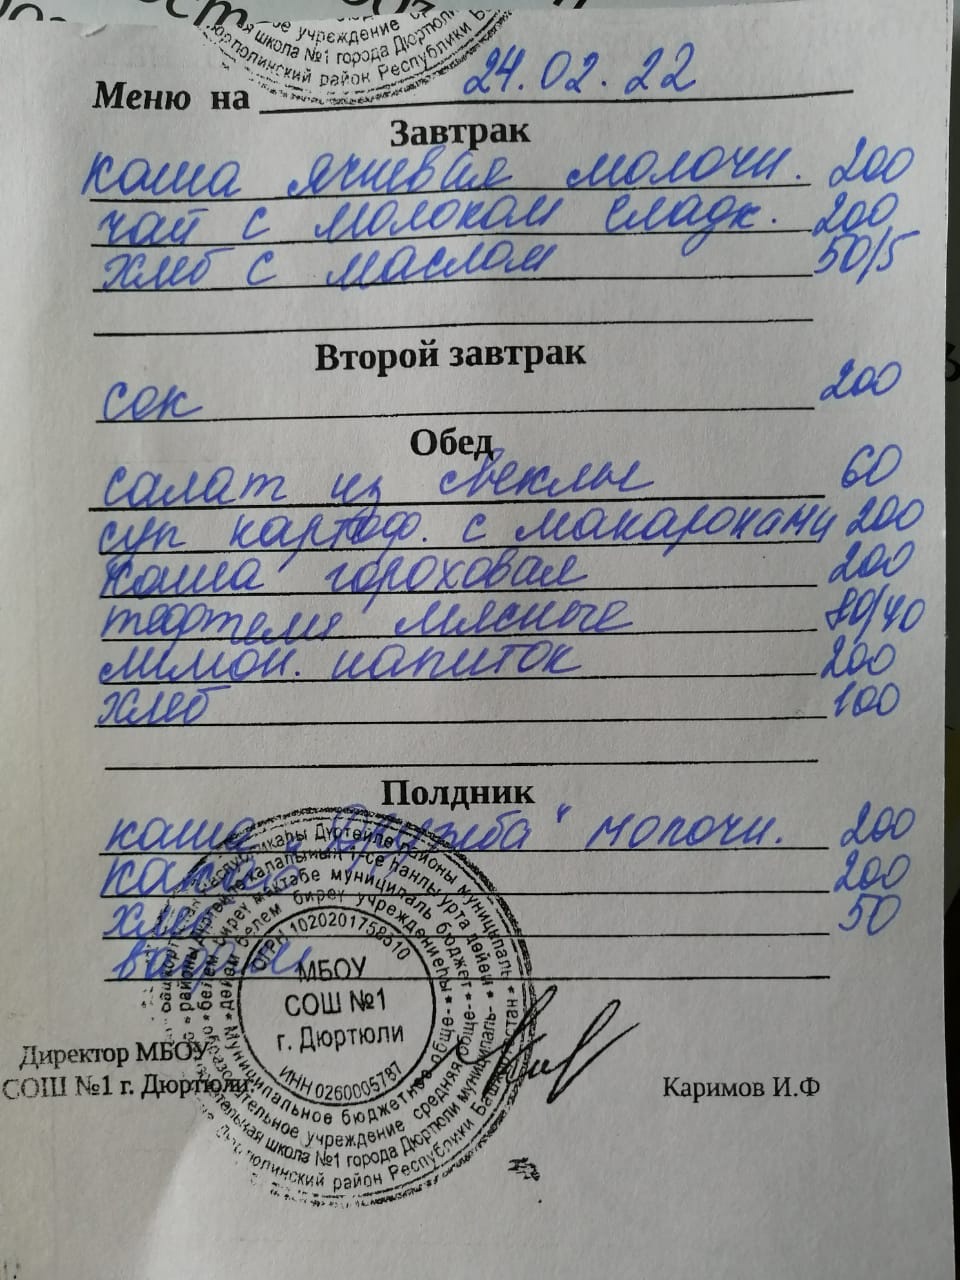 учреждение
школа №1 города Дюртюли
район Республики
Меню на 24.02.22
Завтрак
каша ячневая молочн. 200
чай с молоком сладк. 200
хлеб с маслом 50/5
Второй завтрак
сок 200
Обед
салат из свеклы 60
суп картоф. с макаронами 200
каша гороховая 200
тефтели мясные 80/40
лимон. напиток 200
хлеб 100
Полдник
каша "Дружба" молочн. 200
какао 200
хлеб 50
вафли
ОГРН 1020201758510
МБОУ
СОШ №1
г. Дюртюли
ИНН 0260005787
Муниципальное бюджетное обще-
образовательное учреждение средняя обще-
школа №1 города Дюртюли
район Республики
Директор МБОУ
СОШ №1 г. Дюртюли:
Каримов И.Ф